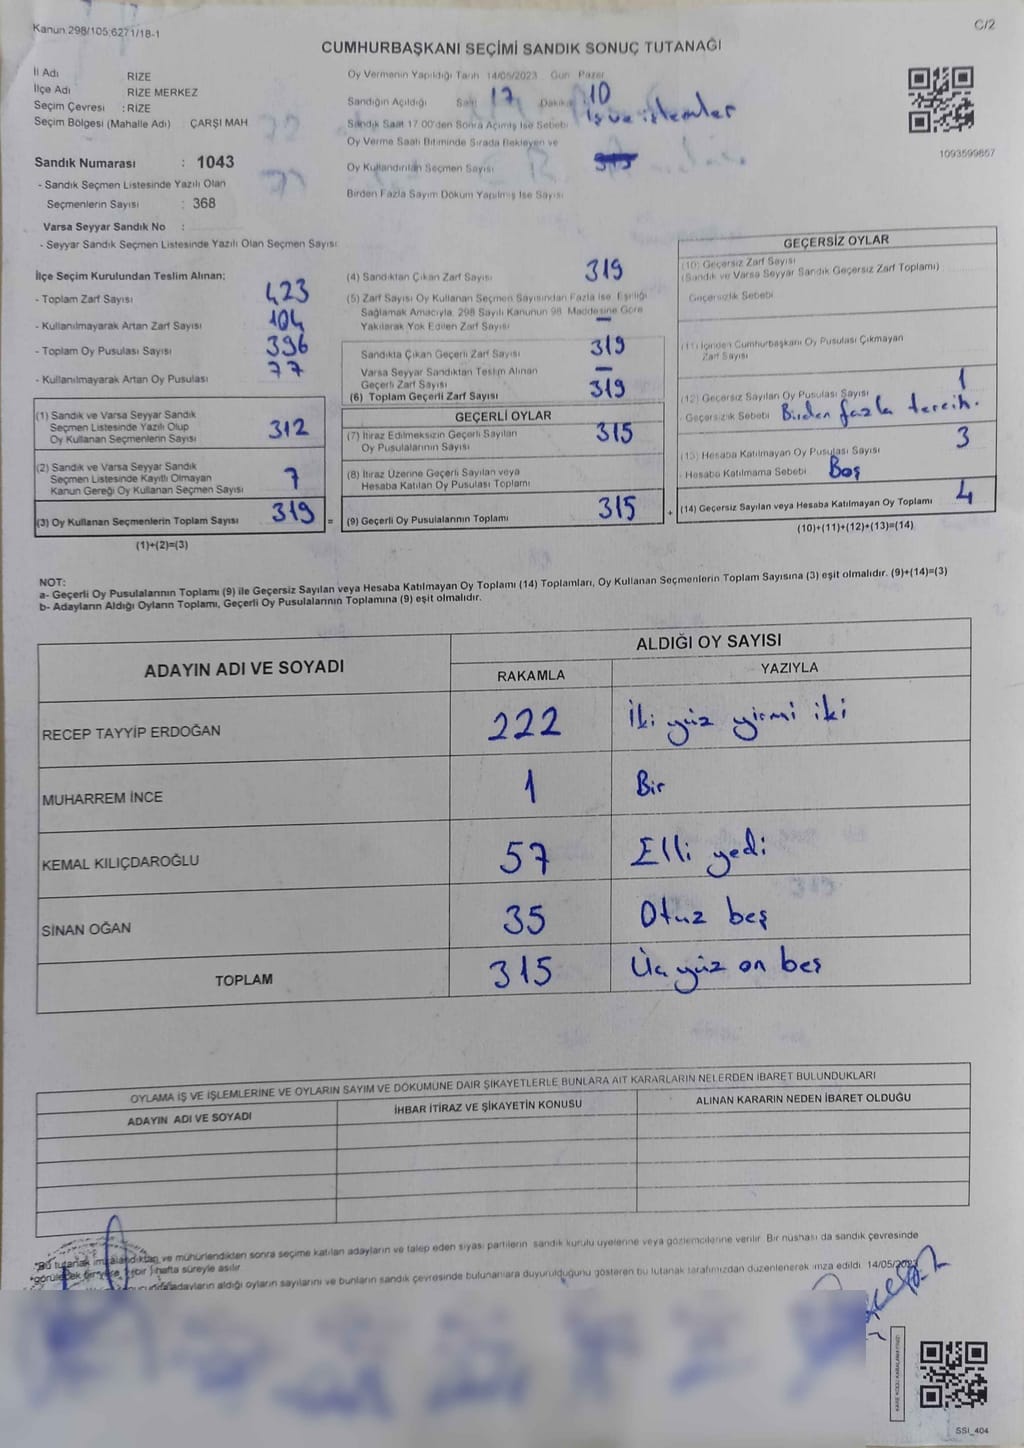 Kanun:298/105;6271/18-1
C/2
CUMHURBAŞKANI SEÇİMİ SANDIK SONUÇ TUTANAĞI
İl Adı RİZE
İlçe Adı RİZE MERKEZ
Seçim Çevresi : RİZE
Seçim Bölgesi (Mahalle Adı) ÇARŞI MAH
Oy Vermenin Yapıldığı Tarih 14/05/2023 Gün Pazar
Sandığın Açıldığı Saat 17 Dakika 10
Sandık Saat 17.00'den Sonra Açılmış İse Sebebi İş ve işlemler
Oy Verme Saati Bitiminde Sırada Bekleyen ve
Oy Kullandırılan Seçmen Sayısı
Birden Fazla Sayım Döküm Yapılmış İse Sayısı
1093599857
Sandık Numarası : 1043
- Sandık Seçmen Listesinde Yazılı Olan
Seçmenlerin Sayısı : 368
Varsa Seyyar Sandık No :
- Seyyar Sandık Seçmen Listesinde Yazılı Olan Seçmen Sayısı
İlçe Seçim Kurulundan Teslim Alınan;
- Toplam Zarf Sayısı 423
- Kullanılmayarak Artan Zarf Sayısı 104
- Toplam Oy Pusulası Sayısı 396
- Kullanılmayarak Artan Oy Pusulası 77
(1) Sandık ve Varsa Seyyar Sandık
Seçmen Listesinde Yazılı Olup
Oy Kullanan Seçmenlerin Sayısı 312
(2) Sandık ve Varsa Seyyar Sandık
Seçmen Listesinde Kayıtlı Olmayan
Kanun Gereği Oy Kullanan Seçmen Sayısı 7
(3) Oy Kullanan Seçmenlerin Toplam Sayısı 319 =
(1)+(2)=(3)
(4) Sandıktan Çıkan Zarf Sayısı 319
(5) Zarf Sayısı Oy Kullanan Seçmen Sayısından Fazla İse, Eşitliği
Sağlamak Amacıyla, 298 Sayılı Kanunun 98. Maddesine Göre
Yakılarak Yok Edilen Zarf Sayısı —
Sandıkta Çıkan Geçerli Zarf Sayısı 319
Varsa Seyyar Sandıktan Teslim Alınan
Geçerli Zarf Sayısı —
(6) Toplam Geçerli Zarf Sayısı 319
GEÇERLİ OYLAR
(7) İtiraz Edilmeksizin Geçerli Sayılan
Oy Pusulalarının Sayısı 315
(8) İtiraz Üzerine Geçerli Sayılan veya
Hesaba Katılan Oy Pusulası Toplamı
(9) Geçerli Oy Pusulalarının Toplamı 315 +
GEÇERSİZ OYLAR
(10) Geçersiz Zarf Sayısı
(Sandık ve Varsa Seyyar Sandık Geçersiz Zarf Toplamı)
Geçersizlik Sebebi
(11) İçinden Cumhurbaşkanı Oy Pusulası Çıkmayan
Zarf Sayısı
(12) Geçersiz Sayılan Oy Pusulası Sayısı 1
- Geçersizlik Sebebi Birden fazla tercih.
(13) Hesaba Katılmayan Oy Pusulası Sayısı 3
- Hesaba Katılmama Sebebi Boş
(14) Geçersiz Sayılan veya Hesaba Katılmayan Oy Toplamı 4
(10)+(11)+(12)+(13)=(14)
NOT:
a- Geçerli Oy Pusulalarının Toplamı (9) ile Geçersiz Sayılan veya Hesaba Katılmayan Oy Toplamı (14) Toplamları, Oy Kullanan Seçmenlerin Toplam Sayısına (3) eşit olmalıdır. (9)+(14)=(3)
b- Adayların Aldığı Oyların Toplamı, Geçerli Oy Pusulalarının Toplamına (9) eşit olmalıdır.
ADAYIN ADI VE SOYADI ALDIĞI OY SAYISI
RAKAMLA YAZIYLA
RECEP TAYYİP ERDOĞAN 222 İki yüz yirmi iki
MUHARREM İNCE 1 Bir
KEMAL KILIÇDAROĞLU 57 Elli yedi
SİNAN OĞAN 35 Otuz beş
TOPLAM 315 Üç yüz on beş
OYLAMA İŞ VE İŞLEMLERİNE VE OYLARIN SAYIM VE DÖKÜMÜNE DAİR ŞİKAYETLERLE BUNLARA AİT KARARLARIN NELERDEN İBARET BULUNDUKLARI
ADAYIN ADI VE SOYADI İHBAR İTİRAZ VE ŞİKAYETİN KONUSU ALINAN KARARIN NEDEN İBARET OLDUĞU
*Bu tutanak imzalandıktan ve mühürlendikten sonra seçime katılan adayların ve talep eden siyasi partilerin sandık kurulu üyelerine veya gözlemcilerine verilir. Bir nüshası da sandık çevresinde
*görülecek bir yere bir hafta süreyle asılır
adayların aldığı oyların sayılarını ve bunların sandık çevresinde bulunanlara duyurulduğunu gösteren bu tutanak tarafımızdan düzenlenerek imza edildi. 14/05/2023
SSİ_404